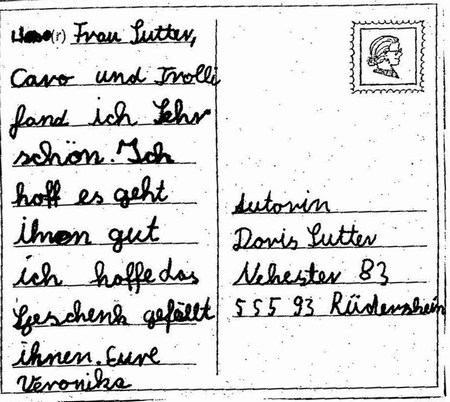 Liebe(r) Frau Sutter,
Caro und Trolli
fand ich Sehr
schön. Ich
hoff es geht
ihnen gut
ich hoffe das
Geschenk gefällt
ihnen. Eure
Veronika
Autorin
Doris Sutter
Nehester 83
555 93 Rüdersheim